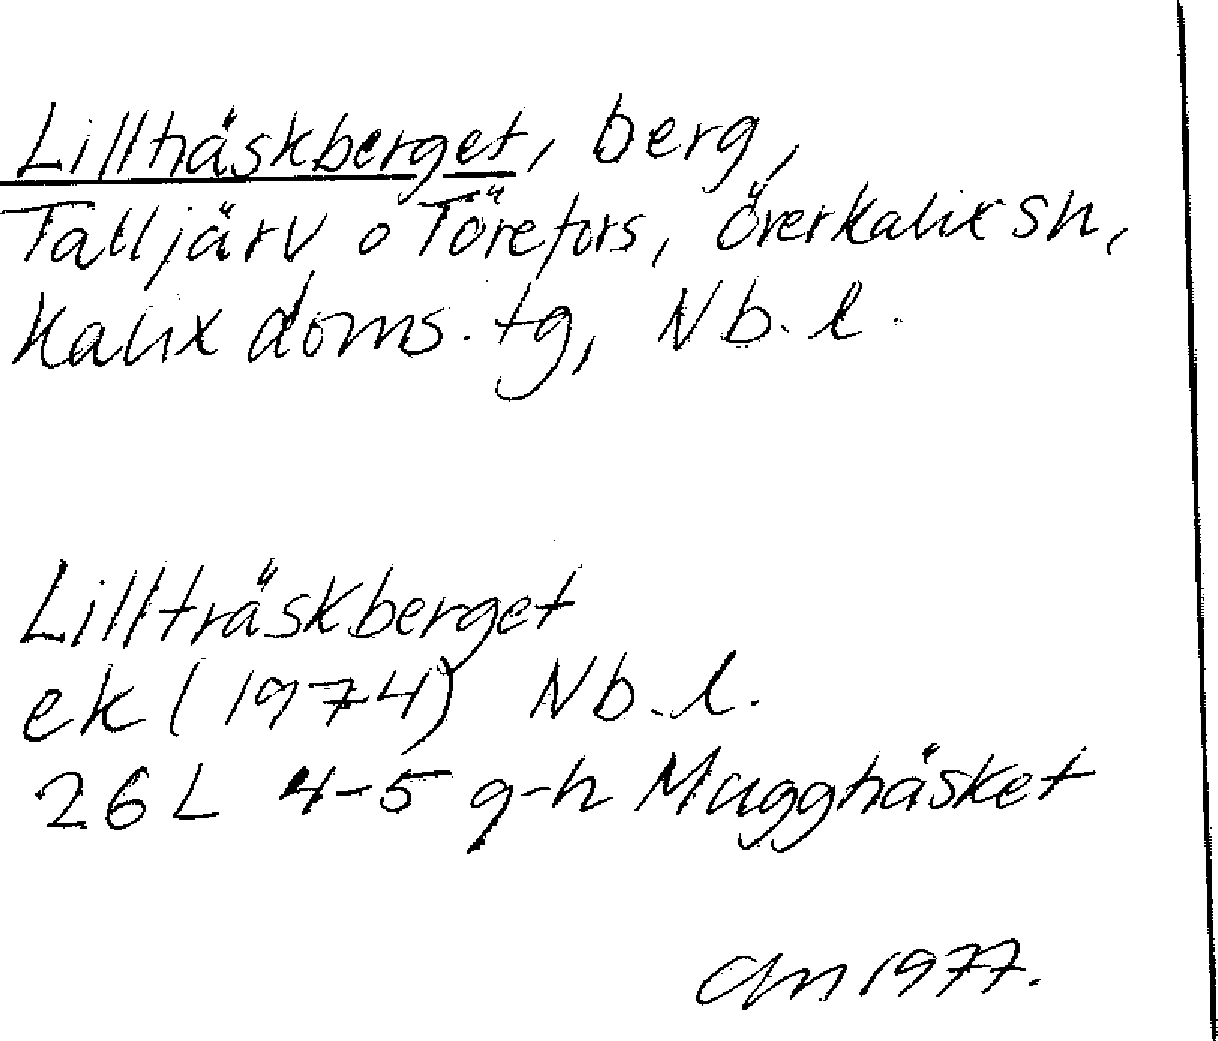 Lillträskberget, berg,
Talljärv o Törefors, överkalix sn,
Kalix doms. tg, Nb. l.
Lillträskberget
ek (1974) Nb. l.
26 L 4-5 g-h Muggträsket
1977.